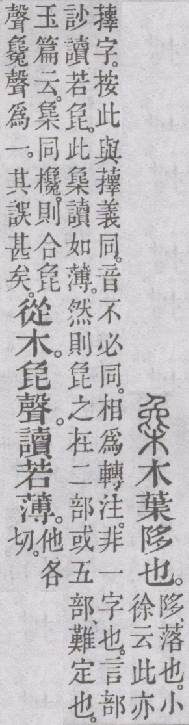 㯱木葉陊也。
陊、落也。小
徐云此亦
蘀字。按此與蘀義同。音不必同。相爲轉注。非一字也。言部
訬讀若㲋。此㯱讀如薄。然則㲋之在二部或五部、難定也。
玉篇云。㯱同欃。則合㲋
聲毚聲爲一。其誤甚矣。
從木㲋聲。讀若薄。
他各
切。